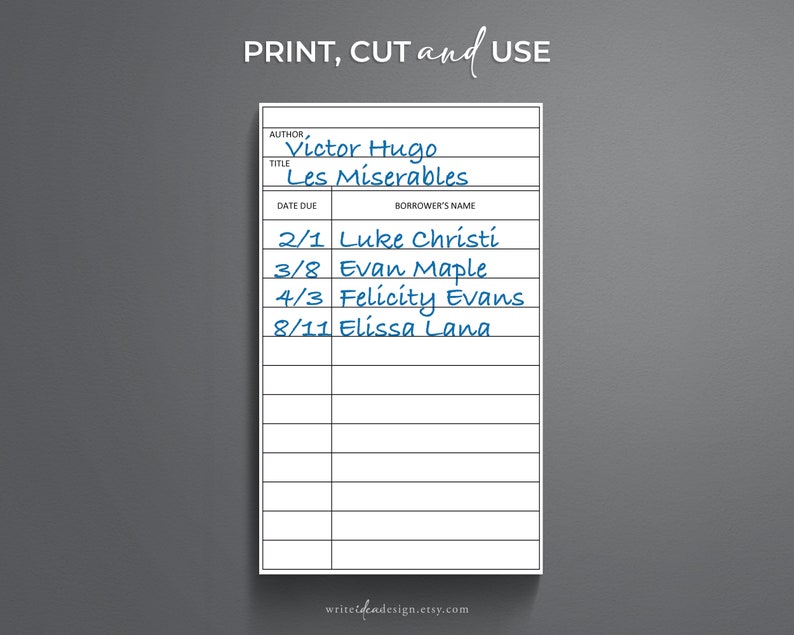 PRINT, CUT and USE
AUTHOR
Victor Hugo
TITLE
Les Miserables
DATE DUE BORROWER'S NAME
2/1 Luke Christi
3/8 Evan Maple
4/3 Felicity Evans
8/11 Elissa Lana
writeideadesign.etsy.com